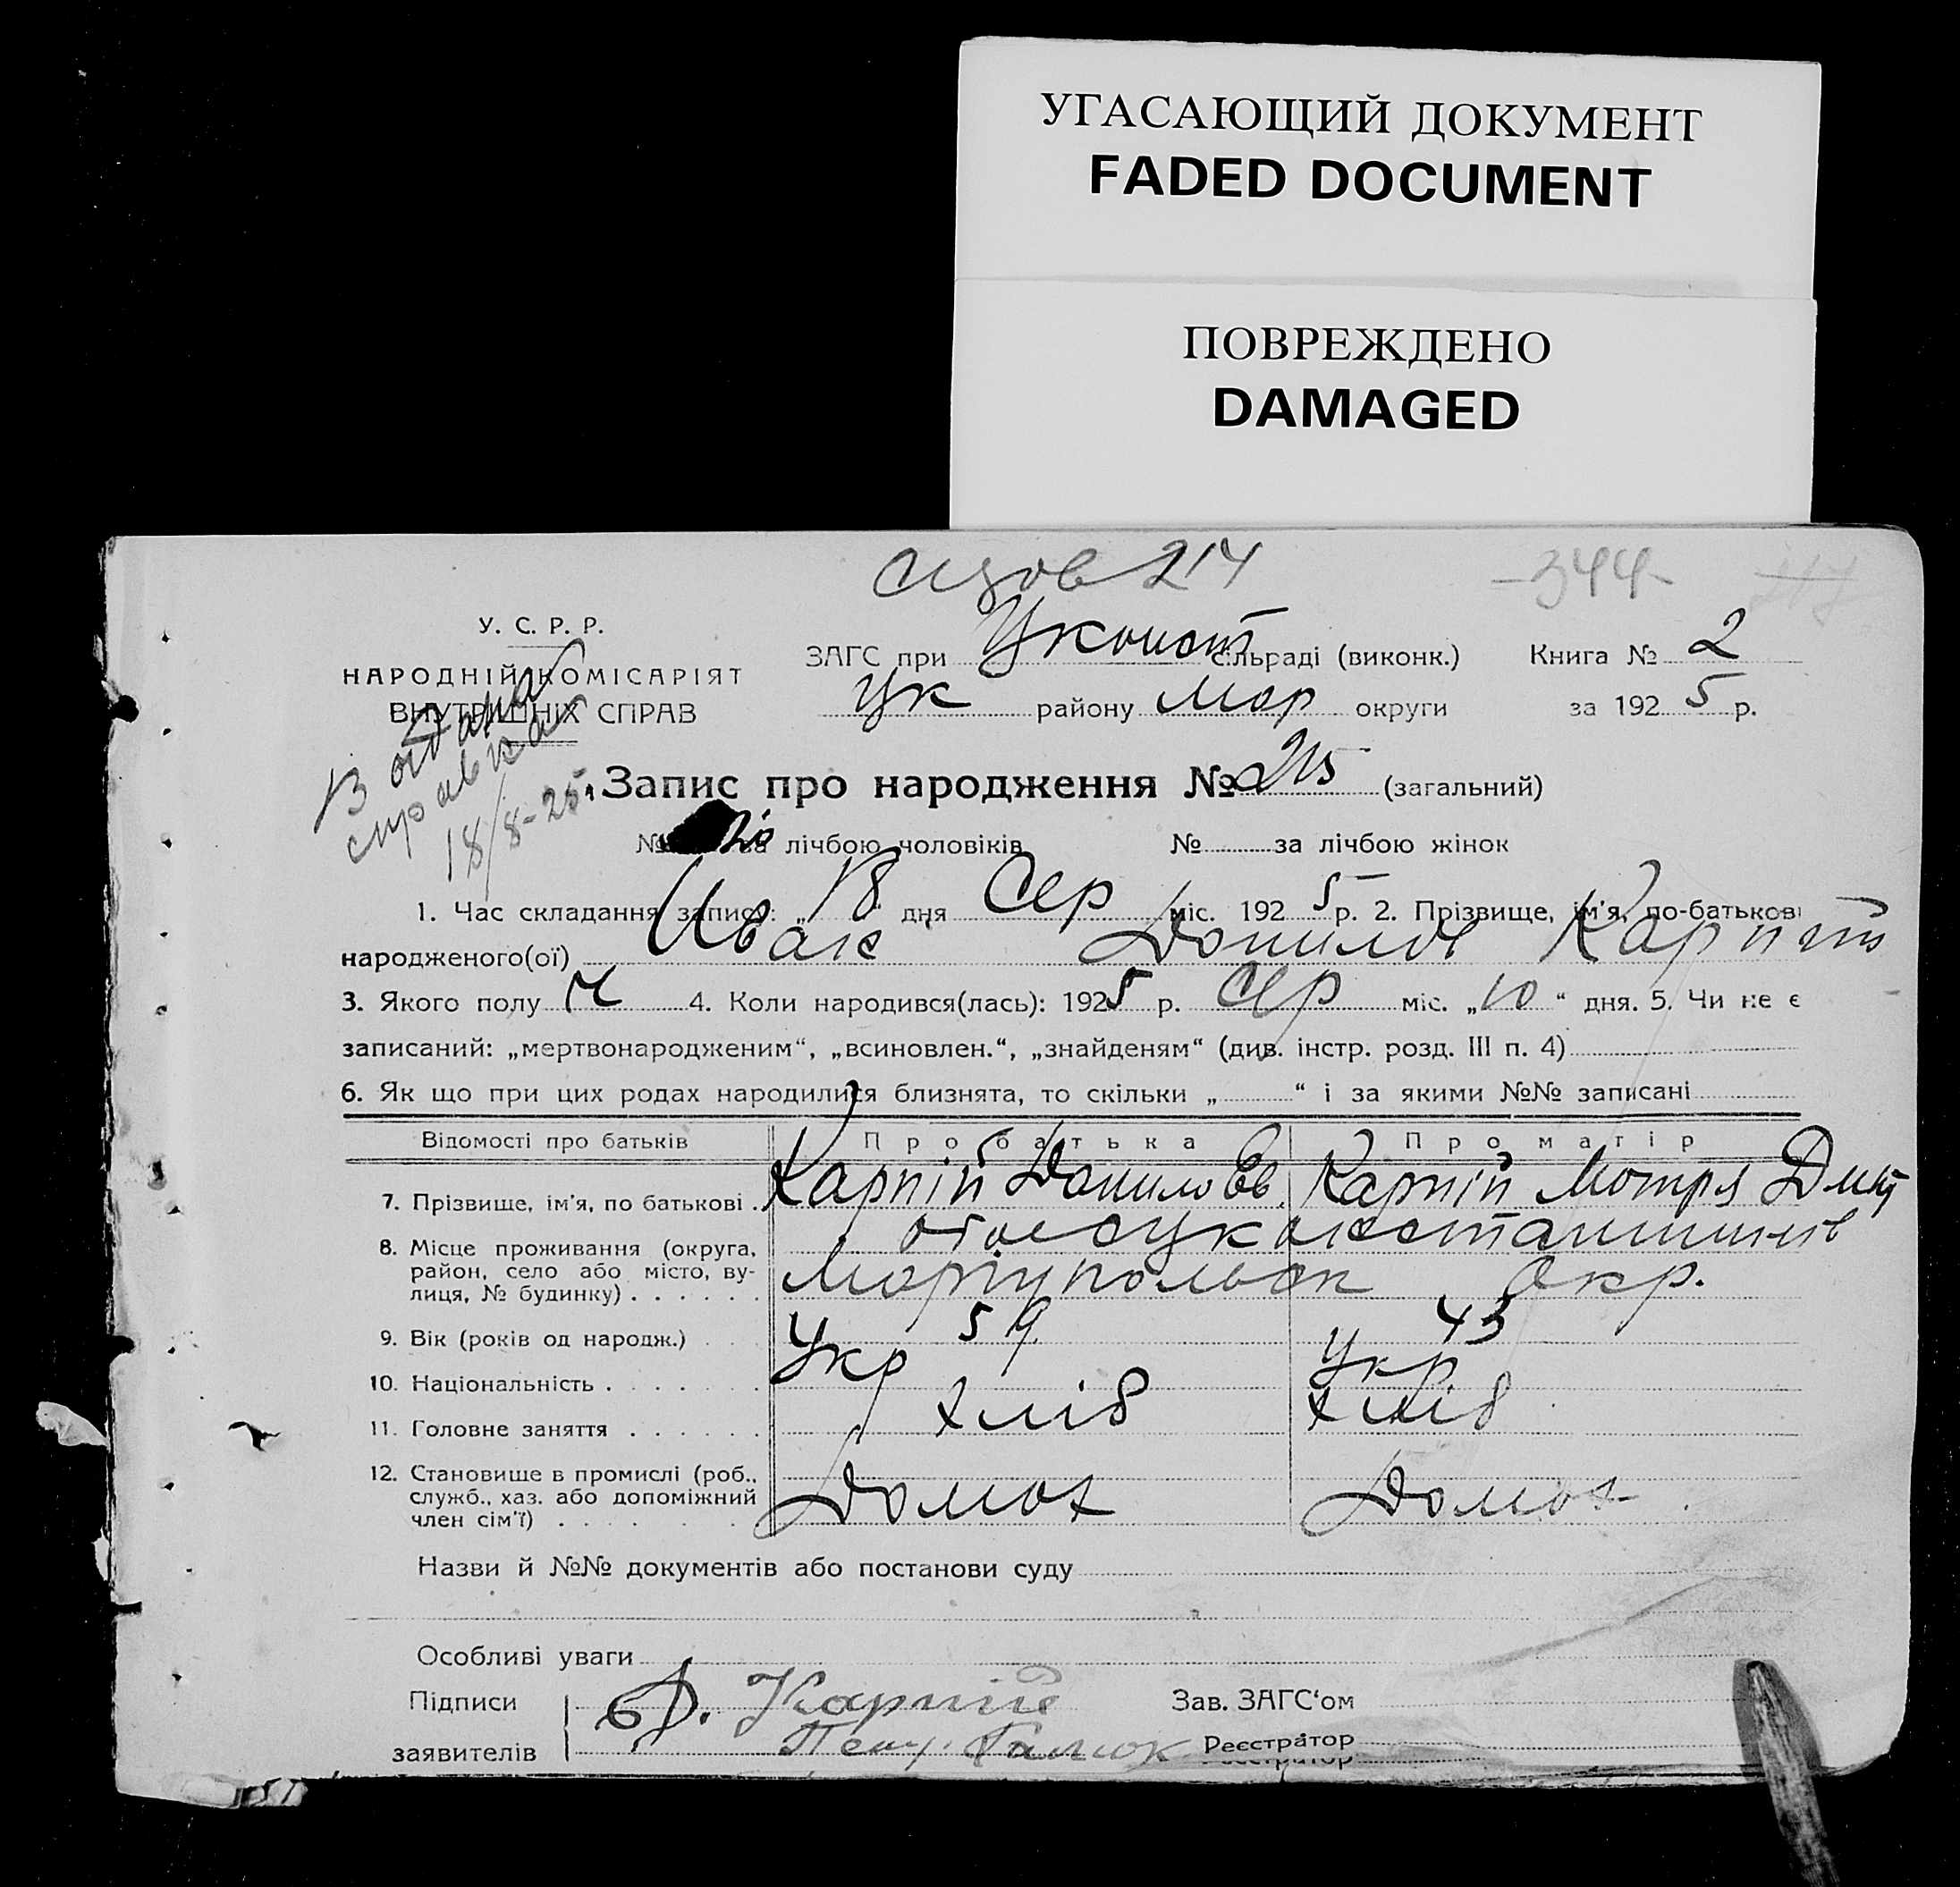 УГАСАЮЩИЙ ДОКУМЕНТ
FADED DOCUMENT
ПОВРЕЖДЕНО
DAMAGED
214
-344-
У. С. Р. Р.
НАРОДНІЙ КОМІСАРІЯТ
ВНУТРІШНІХ СПРАВ
18/8-25
ЗАГС при Уконст сільраді (виконк.) Книга № 2
Ук району Мор округи за 1925 р.
Запис про народження № 215 (загальний)
№ за лічбою чоловіків № за лічбою жінок
1. Час складання запису: „18“ дня Сер міс. 1925 р. 2. Прізвище, ім'я, по-батькові
народженого(ої) Ивак Донилов Карпій
3. Якого полу ч 4. Коли народився(лась): 1925 р. Сер міс. „10“ дня. 5. Чи не є
записаний: „мертвонародженим“, „всиновлен.“, „знайденям“ (див. інстр. розд. III п. 4)
6. Як що при цих родах народилися близнята, то скільки „ “ і за якими №№ записані
Відомості про батьків Про батька Про матір
7. Прізвище, ім'я, по батькові . Карпій Данило Ев. Карпій Мотря Дмит
8. Місце проживання (округа,
район, село або місто, ву-
лиця, № будинку) . . . . . . Моріупольск Окр.
9. Вік (років од народж.) 59 43
10. Національність . . . . . . . Укр Укр
11. Головне заняття . . . . . . хліб хліб
12. Становище в промислі (роб.,
служб., хаз. або допоміжний
член сім'ї) . . . . Домох Домох
Назви й №№ документів або постанови суду
Особливі уваги
Підписи Д. Карпій Зав. ЗАГС'ом
заявителів Галюк Реєстратор